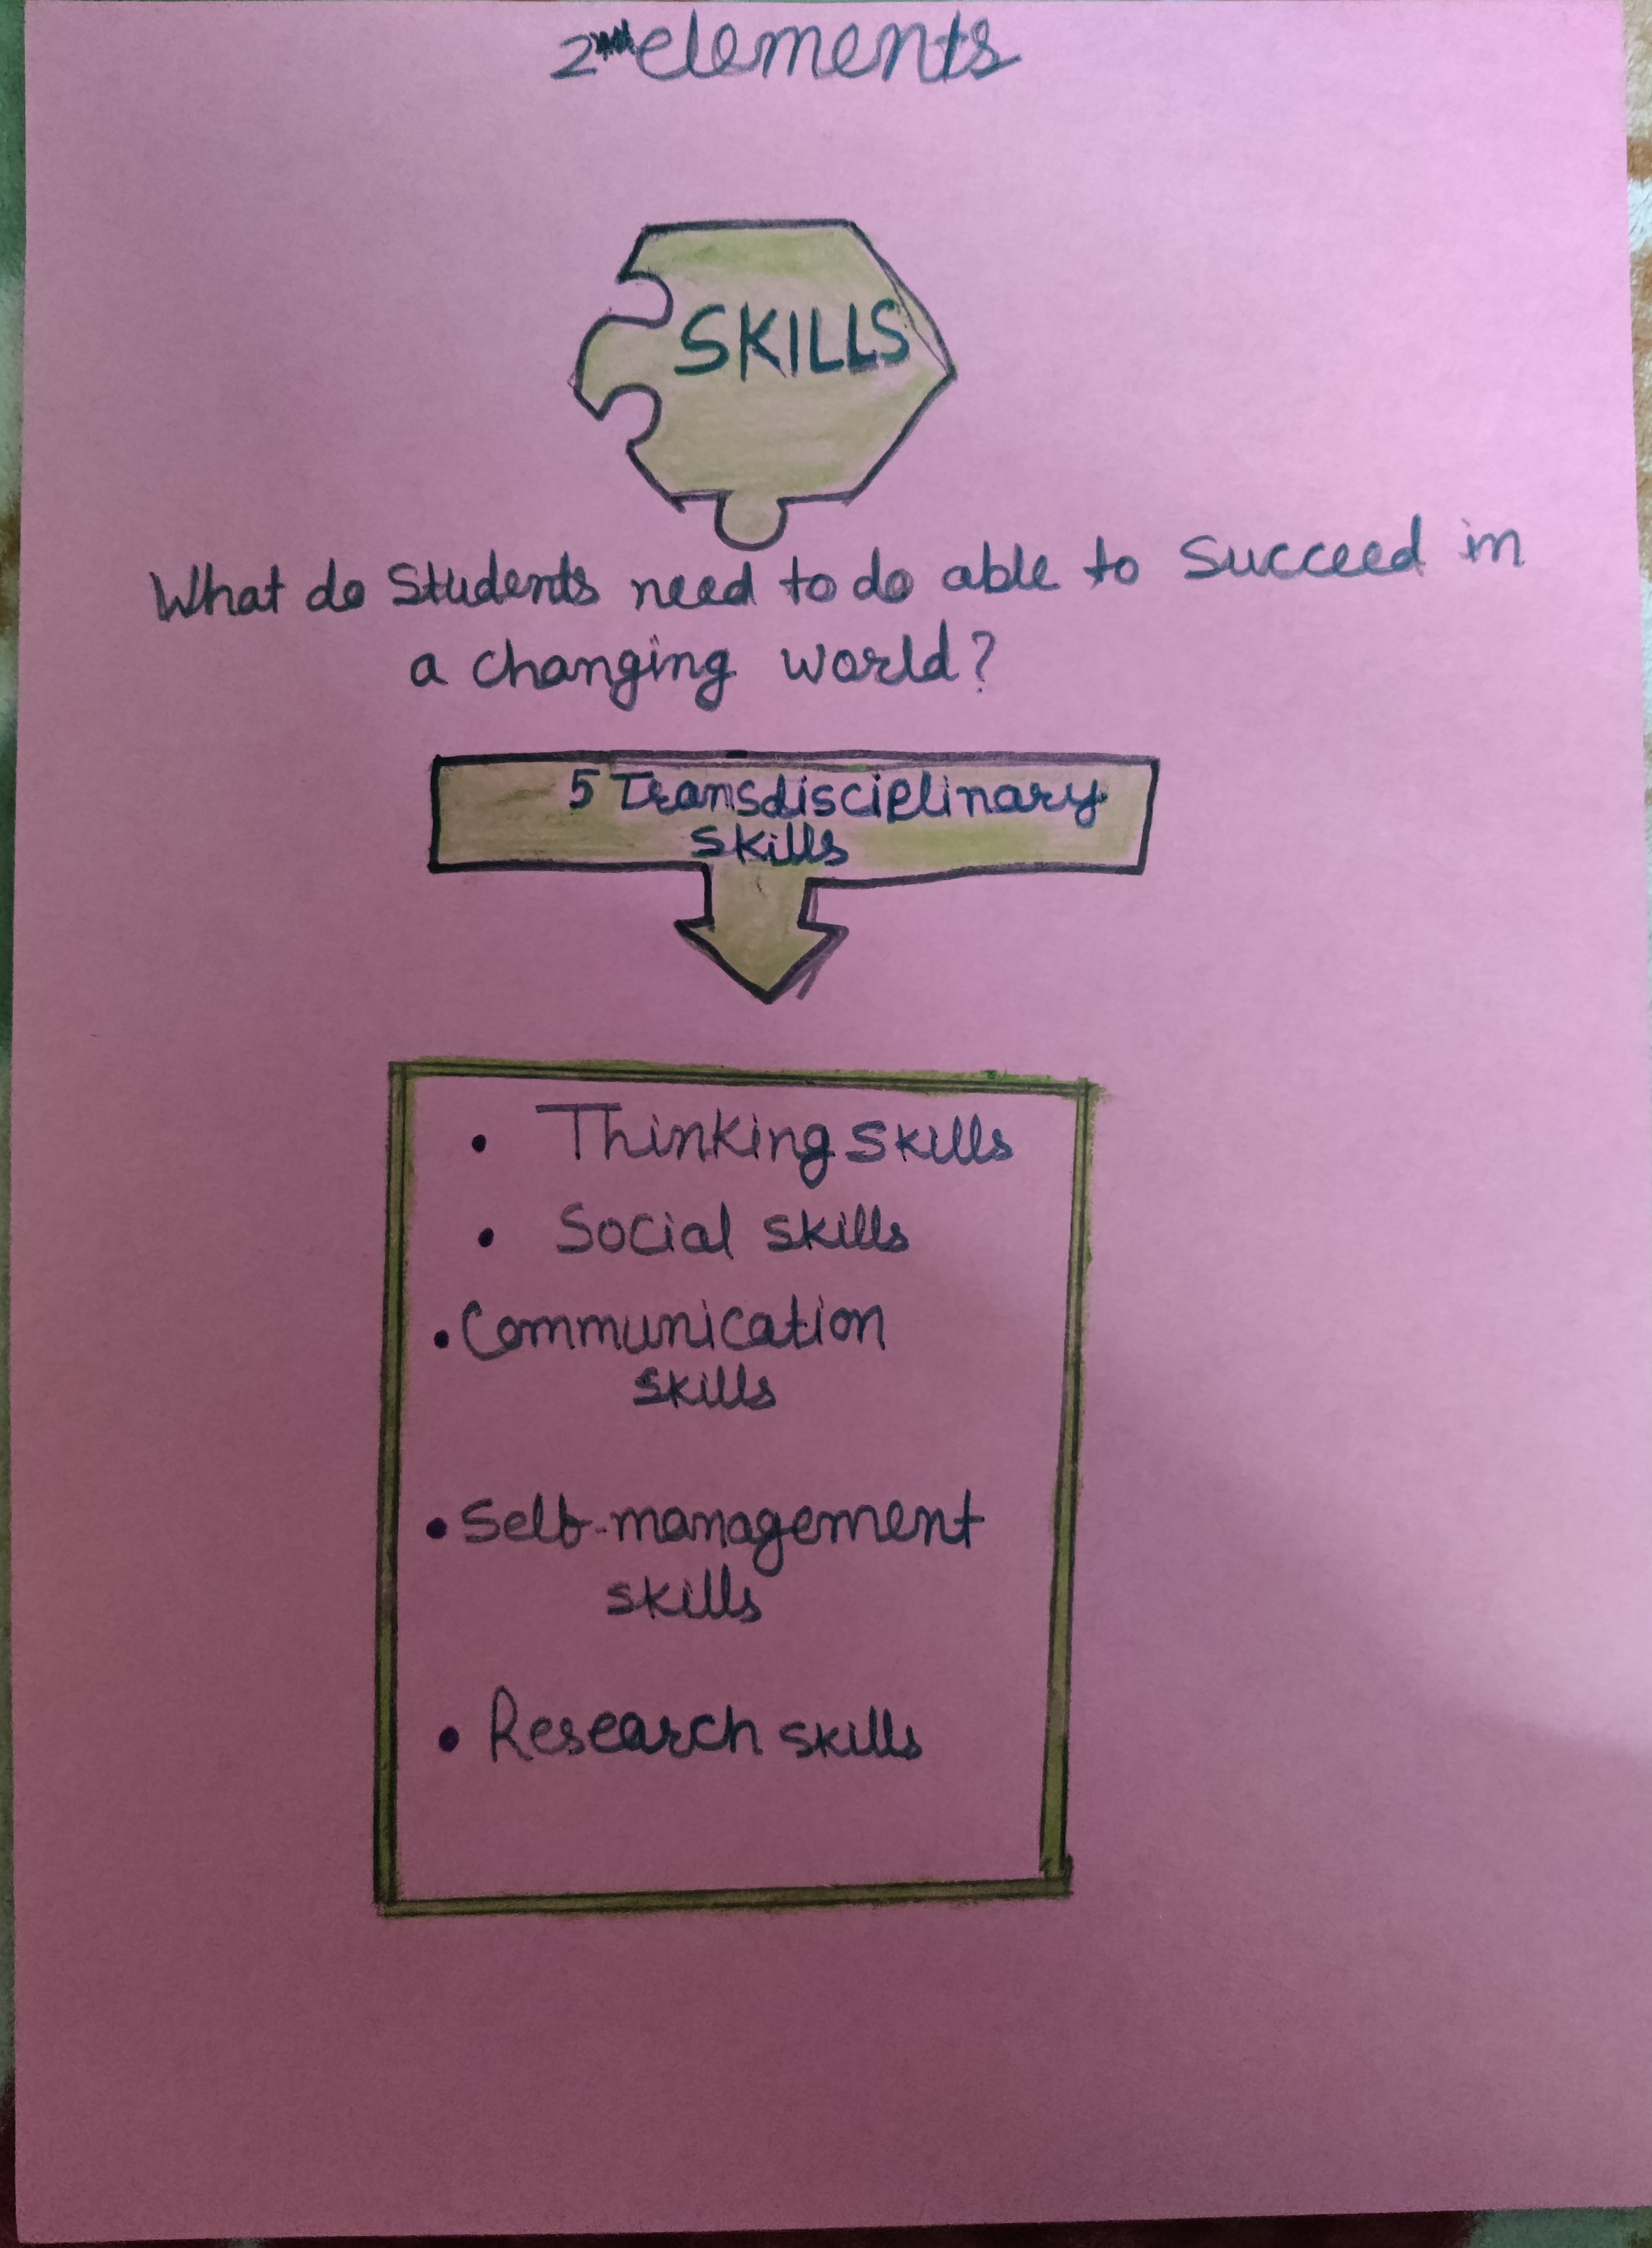 2nd elements
SKILLS
What do Students need to do able to Succeed in
a changing world?
5 Transdisciplinary
skills
• Thinking skills
• Social skills
• Communication
skills
• Self-management
skills
• Research skills